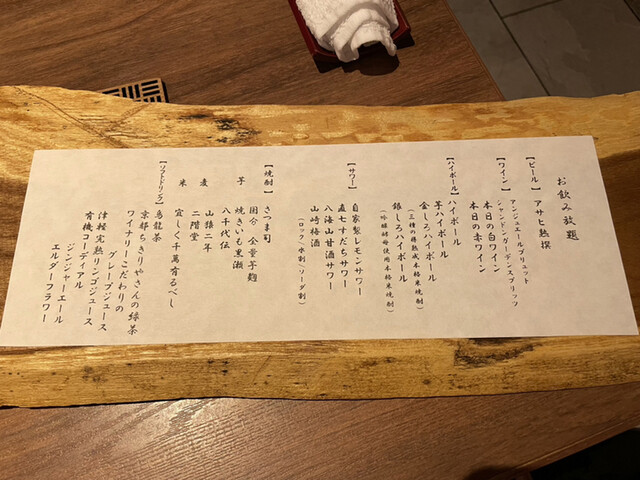 お飲み放題
【ビール】 アサヒ熟撰
アンジュエールブリュット
【ワイン】 シャンドンガーデンスプリッツ
本日の白ワイン
本日の赤ワイン
【ハイボール】 ハイボール
芋ハイボール
金しろハイボール
(三種の樽熟成本格米焼酎)
銀しろハイボール
(吟醸酵母使用本格米焼酎)
【サワー】 自家製レモンサワー
直七すだちサワー
八海山甘酒サワー
山崎梅酒
(ロック/水割/ソーダ割)
【焼酎】 さつま司
芋 国分 全量芋麹
焼きいも黒瀬
八千代伝
麦 山猿二年
二階堂
米 宜しく千萬有るべし
【ソフトドリンク】 烏龍茶
京都ちきりやさんの緑茶
ワイナリーこだわりの
グレープジュース
津軽完熟リンゴジュース
有機コーディアル
ジンジャーエール
エルダーフラワー